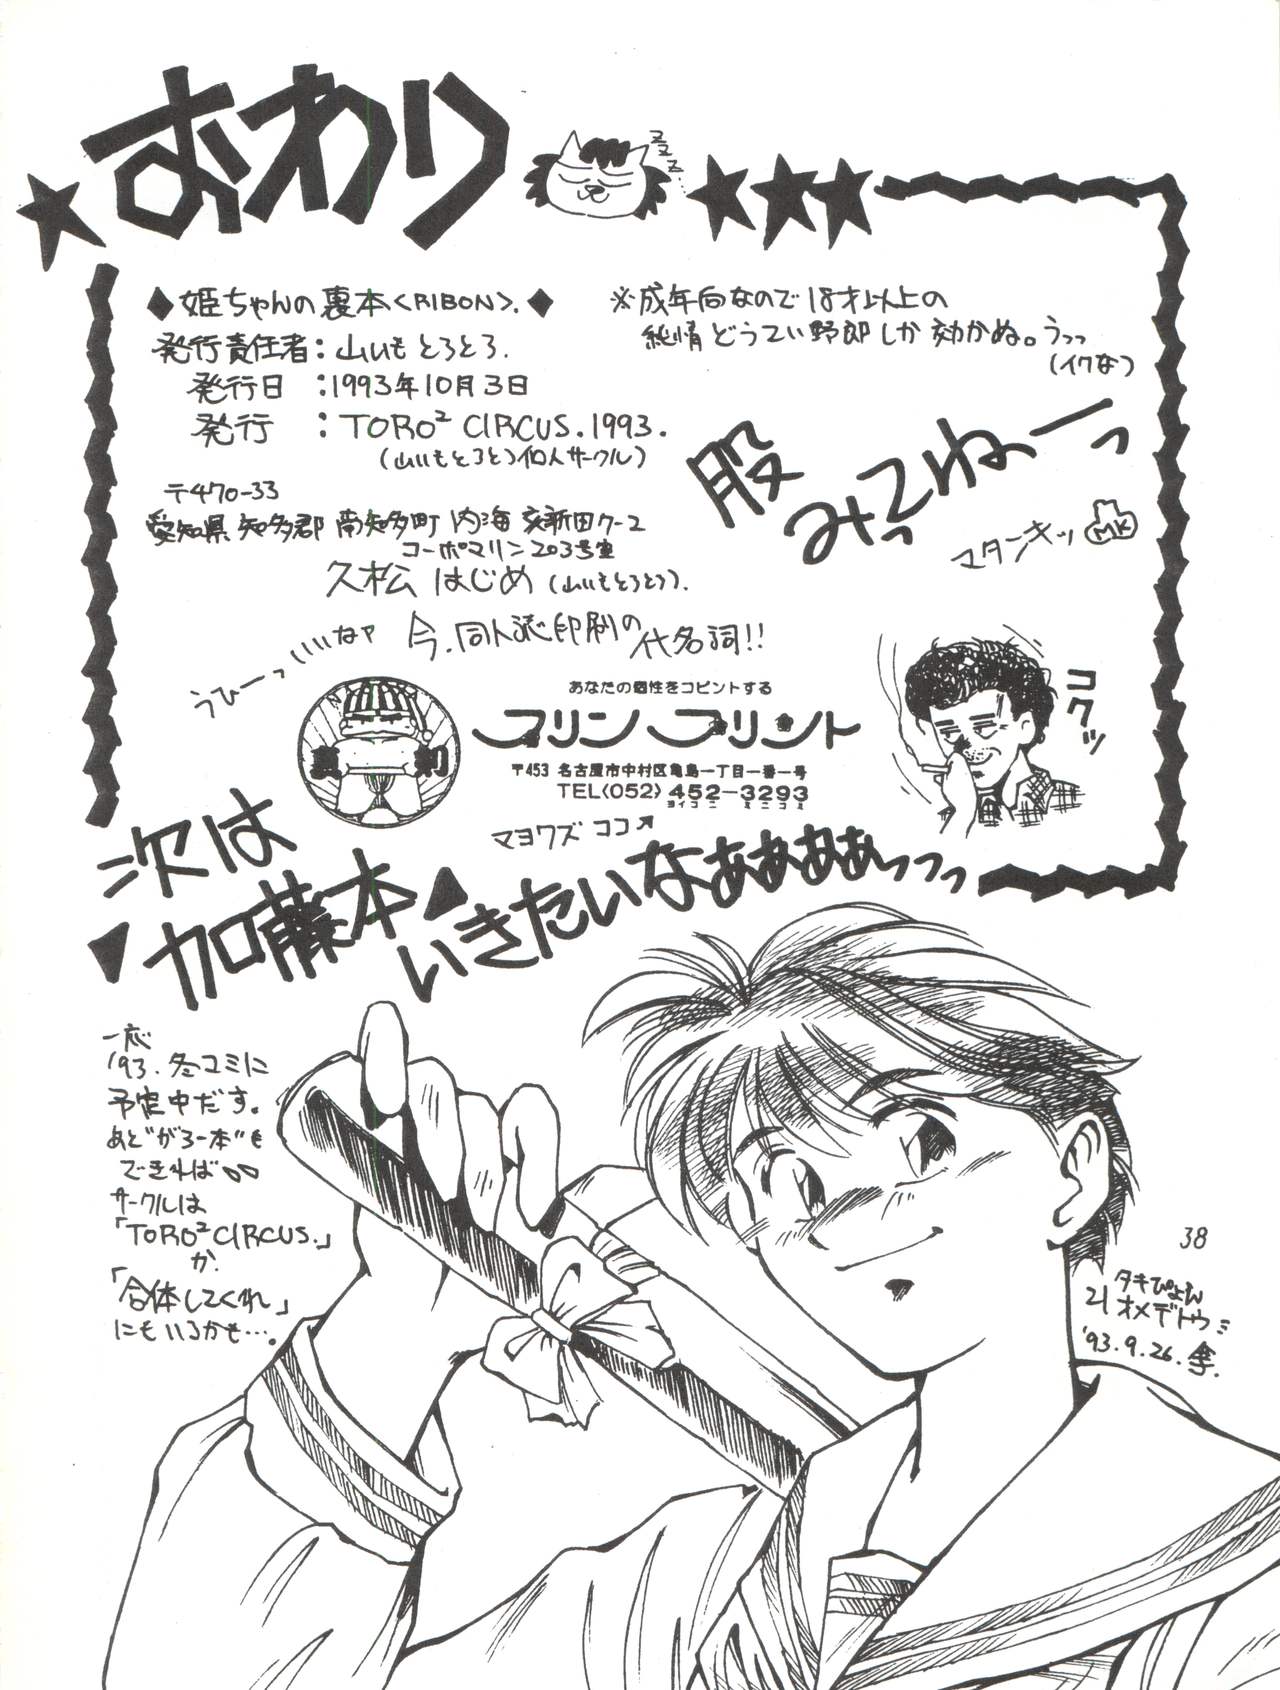 おわり
zzz
◆姫ちゃんの裏本<RIBON>.◆
発行責任者:山いもとろとろ.
発行日:1993年10月3日
発行:TORO² CIRCUS.1993.
(山いもとろとろ個人サークル)
〒470-33
愛知県知多郡南知多町内海
コーポマリン203号室
久松はじめ(山いもとろとろ).
※成年向なので18才以上の
純情どうてい野郎しか効かぬ。うっっ
(イクな)
股みってねーっ
マターンキッ
MK
うひーっいいなァ
今、同人誌印刷の代名詞!!
あなたの個性をコピントする
プリンプリント
〒453 名古屋市中村区亀島一丁目一番一号
TEL(052)452-3293
ヨイコニ ミニコミ
マヨワズココ↗
コクッ
次は
加藤本
いきたいなぁぁぁぁっっっ
一応
'93.冬コミに
予定中だす。
あと“がろー本”も
できれば∞
サークルは
「TORO² CIRCUS.」
か
「合体してくれ」
にもいるかも…。
38
タキぴょん
21オメデトウ
'93.9.26.